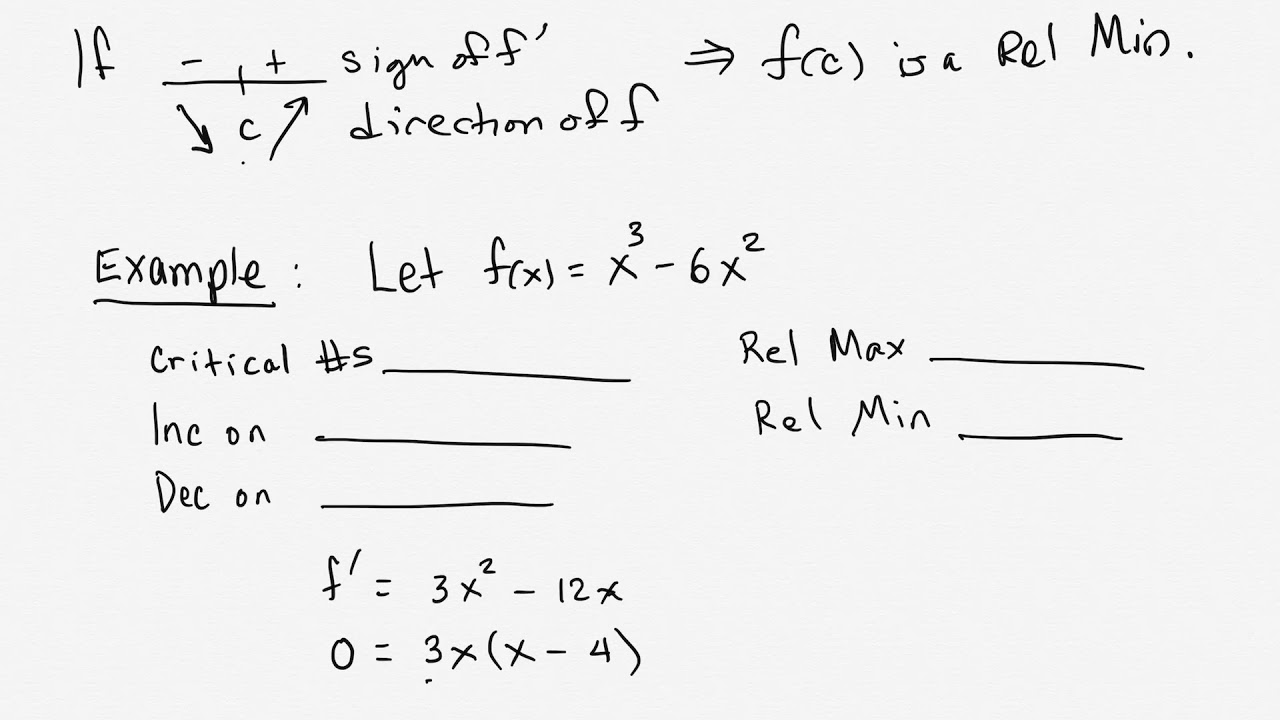 If - + sign of f' ⇒ f(c) is a Rel Min.
c direction of f
Example: Let f(x) = x³ - 6x²
Critical #s
Rel Max
Inc on
Rel Min
Dec on
f' = 3x² - 12x
0 = 3x(x - 4)